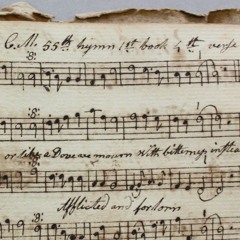 C. M. 55th hymn 1st book 4th verse
or like a Dove we mourn with bitterness instead
Afflicted and forlorn